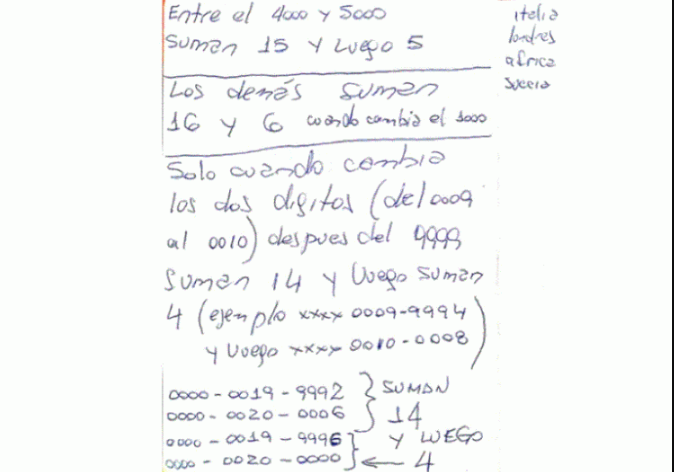 Entre el 4000 y 5000
suman 15 y luego 5
Los demás suman
16 y 6 cuando cambia el 1000
Solo cuando cambia
los dos digitos (del 0009
al 0010) despues del 9999
suman 14 y luego suman
4 (ejemplo xxxx 0009-9994
y luego xxxx 0010-0008)
0000-0019-9992 } SUMAN
0000-0020-0006 } 14
0000-0019-9996 } Y LUEGO
0000-0020-0000 } ← 4
italia
londres
africa
suecia